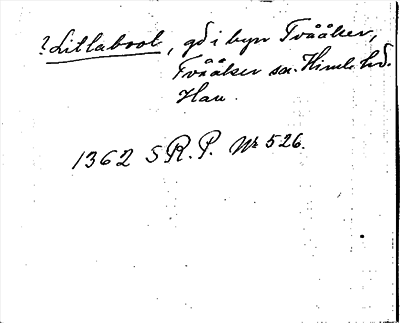 ? Litlabool, gd i byn Tvååker,
Tvååker sn. Himle hd.
Hau.
1362 SR.P. Nr 526.